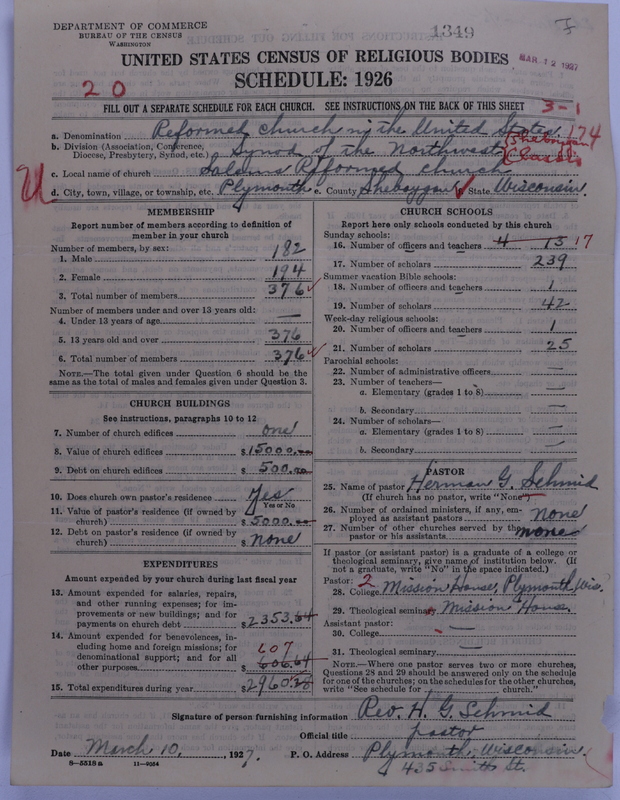 DEPARTMENT OF COMMERCE
BUREAU OF THE CENSUS
WASHINGTON
1349
UNITED STATES CENSUS OF RELIGIOUS BODIES
MAR 12 1927
SCHEDULE: 1926
20
FILL OUT A SEPARATE SCHEDULE FOR EACH CHURCH. SEE INSTRUCTIONS ON THE BACK OF THIS SHEET
3-1
a. Denomination Reformed Church in the United States 174
b. Division (Association, Conference, Diocese, Presbytery, Synod, etc.) Synod of the Northwest Sheboygan Classis
c. Local name of church Salems Reformed Church
d. City, town, village, or township, etc. Plymouth e. County Sheboygan State Wisconsin
MEMBERSHIP
Report number of members according to definition of
member in your church
Number of members, by sex:
1. Male 182
2. Female 194
3. Total number of members 376
Number of members under and over 13 years old:
4. Under 13 years of age —
5. 13 years old and over 376
6. Total number of members 376
NOTE.—The total given under Question 6 should be the
same as the total of males and females given under Question 3.
CHURCH BUILDINGS
See instructions, paragraphs 10 to 12
7. Number of church edifices one
8. Value of church edifices $15000.00
9. Debt on church edifices $500.00
10. Does church own pastor's residence Yes
Yes or No
11. Value of pastor's residence (if owned by
church) $5000.00
12. Debt on pastor's residence (if owned by
church) $none
EXPENDITURES
Amount expended by your church during last fiscal year
13. Amount expended for salaries, repairs,
and other running expenses; for im-
provements or new buildings; and for
payments on church debt $2353.64
14. Amount expended for benevolences, in-
cluding home and foreign missions; for
denominational support; and for all
other purposes 607 $606.64
15. Total expenditures during year $2960.28
CHURCH SCHOOLS
Report here only schools conducted by this church
Sunday schools:
16. Number of officers and teachers 4 13 17
17. Number of scholars 239
Summer vacation Bible schools:
18. Number of officers and teachers 1
19. Number of scholars 42
Week-day religious schools:
20. Number of officers and teachers 1
21. Number of scholars 25
Parochial schools:
22. Number of administrative officers —
23. Number of teachers—
a. Elementary (grades 1 to 8) —
b. Secondary —
24. Number of scholars—
a. Elementary (grades 1 to 8) —
b. Secondary —
PASTOR
25. Name of pastor Herman G. Schmid
(If church has no pastor, write "None")
26. Number of ordained ministers, if any, em-
ployed as assistant pastors none
27. Number of other churches served by the
pastor or his assistants none
If pastor (or assistant pastor) is a graduate of a college or
theological seminary, give name of institution below. (If
not a graduate, write "No" in the space indicated.)
Pastor: 2
28. College Mission House, Plymouth, Wis.
29. Theological seminary Mission House.
Assistant pastor:
30. College —
31. Theological seminary —
NOTE.—Where one pastor serves two or more churches,
Questions 28 and 29 should be answered only on the schedule
for one of the churches; on the schedules for the other churches,
write "See schedule for church."
Signature of person furnishing information Rev. H. G. Schmid
Official title pastor
Date March 10, 1927. P. O. Address Plymouth, Wisconsin.
8-5518a 11-9054 435 Smith St.